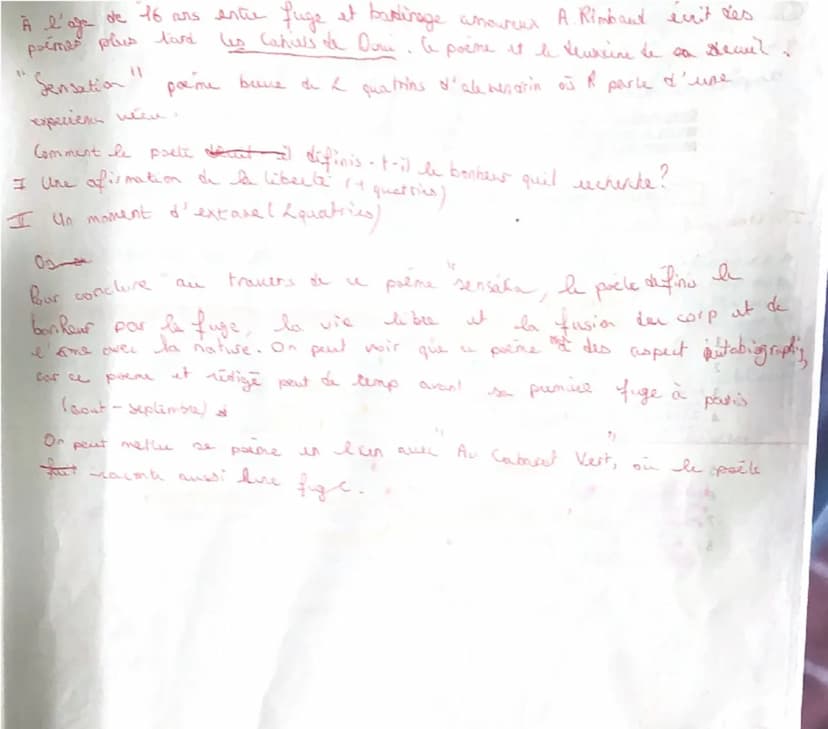 À l'age de 16 ans entre fuge et badinage amoureux A. Rimbaud écrit des
poèmes plus tard les Cahiers de Doui. Ce poème est le deuxième de ce recueil.
"Sensation" poème breve de 2 quatrins d'alexendrin où R parle d'une
experience vécu.
Comment le poète définis-t-il le bonheur quil recherche?
I Une afirmation de la liberté (1 quatrins)
II Un moment d'extase (2 quatrins)
On
Pour conclure au travers de ce poème "sensation, le poète défini le
bonheur par la fuge, la vie libre et la fusion du corp et de
l'ame avec la nature. On peut voir que ce poème a des aspect autobiographiq,
car ce poème et rédigé peut de temp avant sa première fuge à paris
(aout-septembre)
On peut mettre ce poème en lien avec "Au Cabaret Vert", où le poète
raconte aussi fuge.